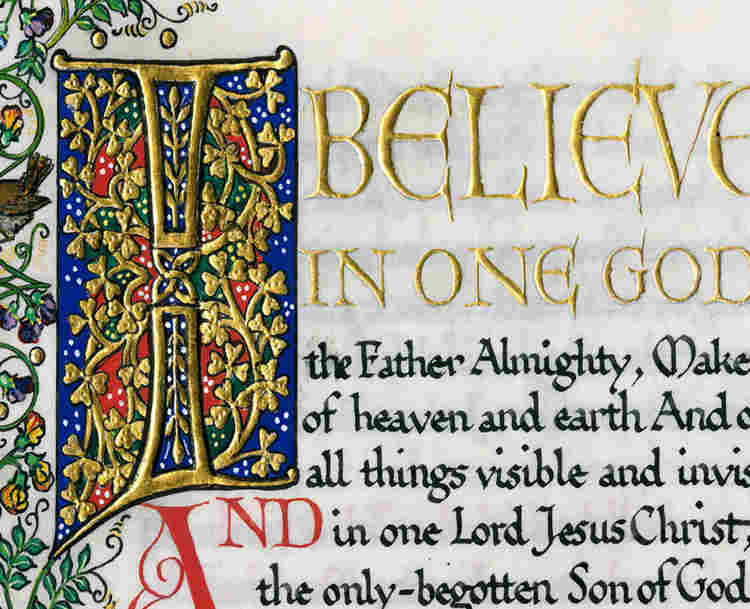 I BELIEVE
IN ONE GOD
the Father Almighty, Make
of heaven and earth And o
all things visible and invis
AND in one Lord Jesus Christ,
the only-begotten Son of God